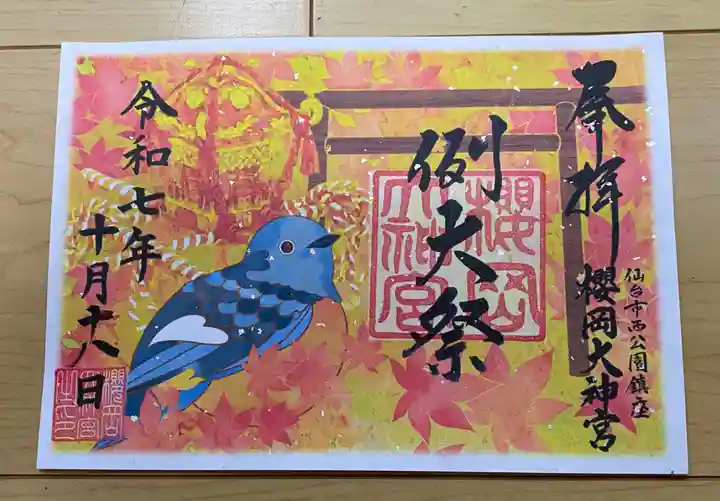 奉拝
仙台市西公園鎮座
櫻岡大神宮
例大祭
櫻岡
大神宮
令和七年
十月十八日
櫻岡
大神宮
之印